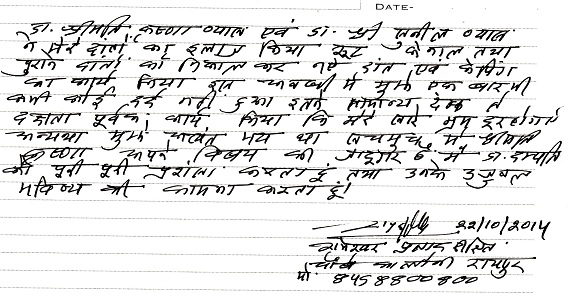 DATE-
डा. श्रीमति कृष्णा व्यास एवं डा. श्री सुनील व्यास
ने मेरे दांतों का इलाज किया रूट केनाल तथा
पुराने दांतों को निकाल कर नए दांत एवं केपिंग
का कार्य किया इस अवधी में मुझे एक बार भी
कभी कोई दर्द नहीं हुआ इतने सामान्य ढंग से
दक्षता पूर्वक कार्य किया कि मेरे सारे भ्रम दूर होगये
अन्यथा मुझे अत्यंत भय था सचमुच में श्रीमति
कृष्णा अपने विषय की जादूगर है में डा. दम्पति
की भूरी भूरी प्रशंसा करता हूं तथा उनके उज्जवल
भविष्य की कामना करता हूं।
22/10/2014
रामेश्वर प्रसाद
चौबे कालोनी रायपुर
मो. 8458800800